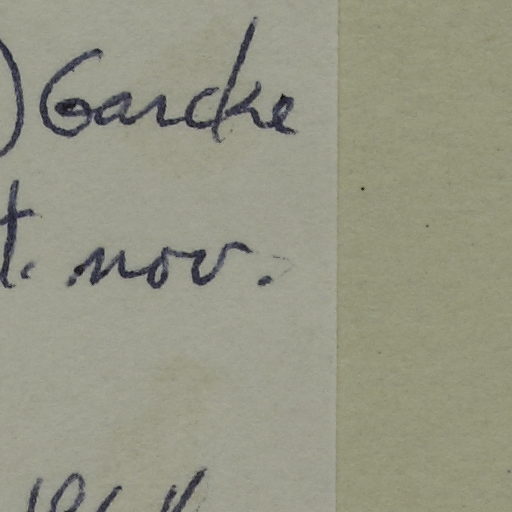 ) Garcke
t. nov.